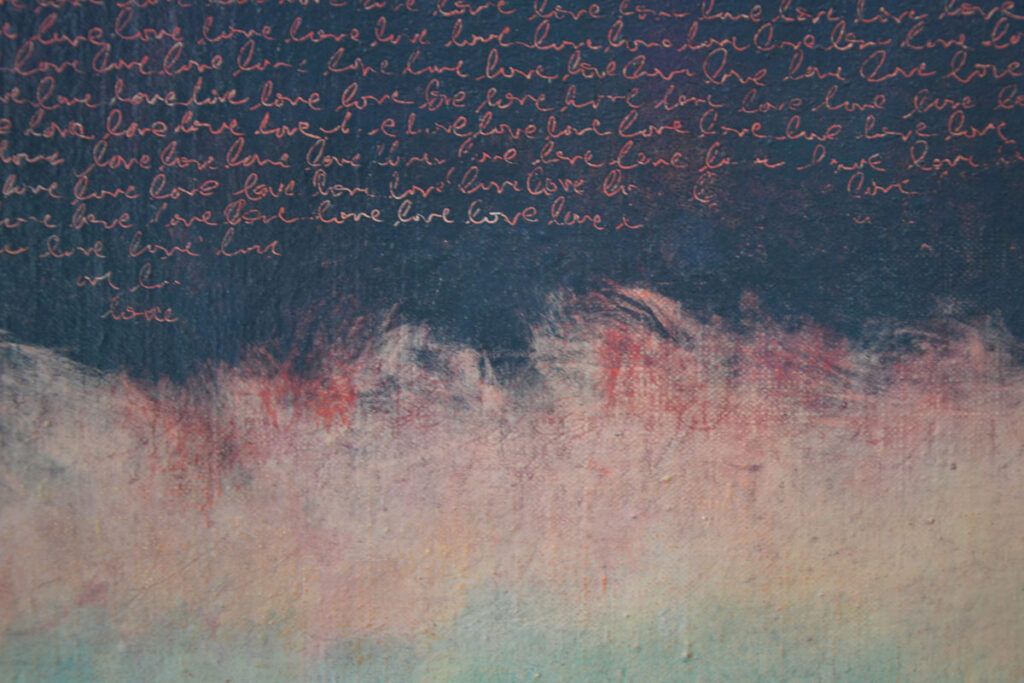 love love love love love love love love
love love love love love love love love love love love love love love lo
love love love love love love love love love love love love love love
love love love love love love love love love love love love
love love love love love love love love love love love love
love love love love love love love love love love love
love love love love love love love love love
love love love love love love love
love love love
love